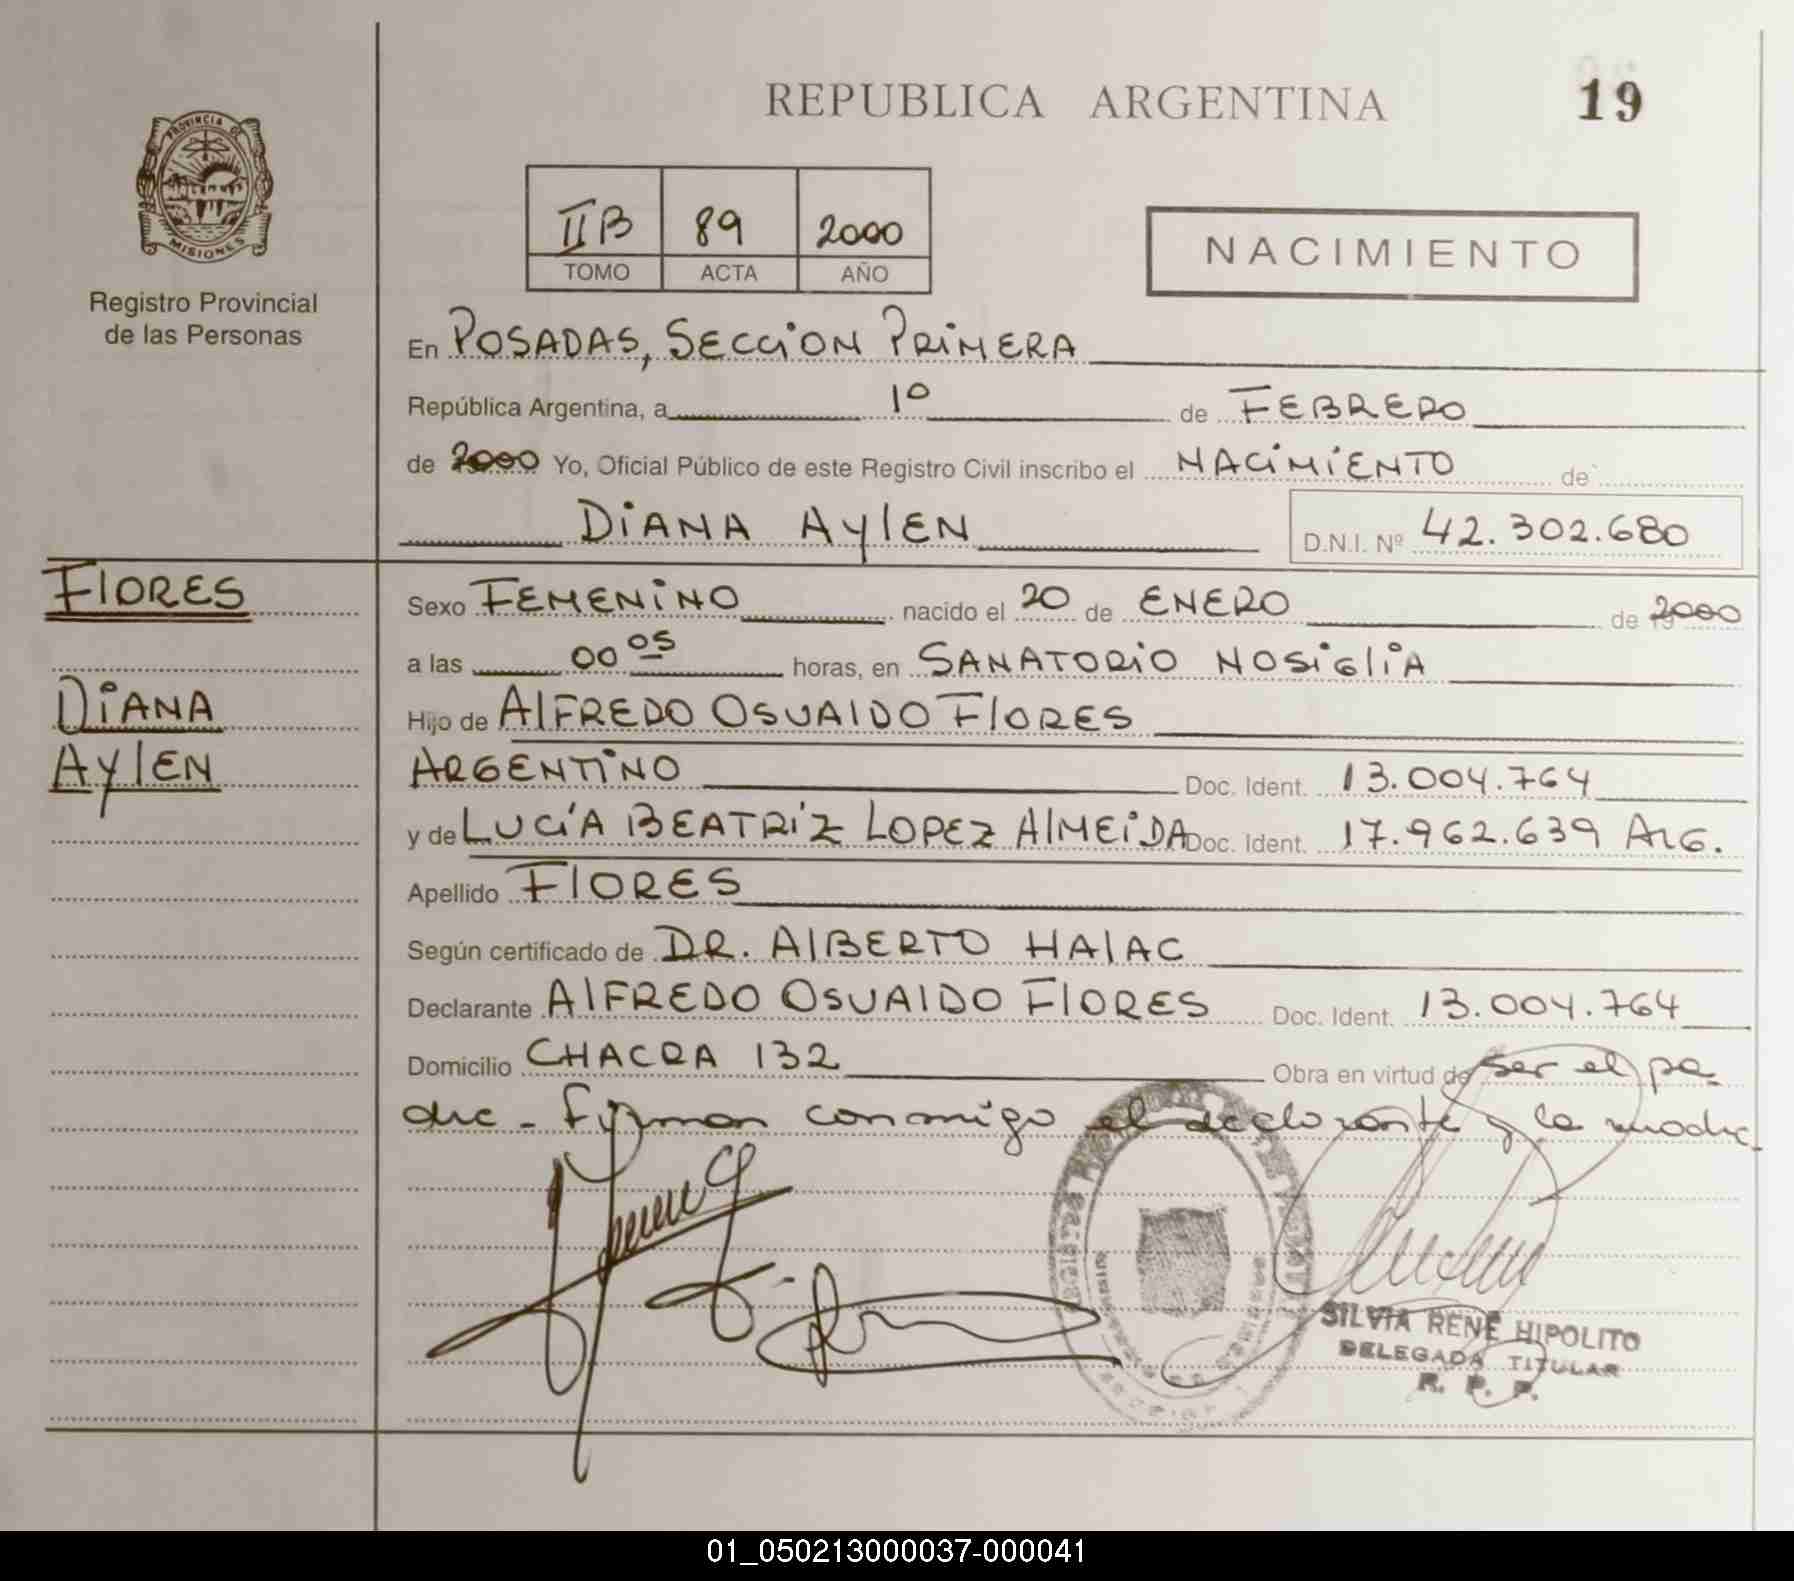 REPUBLICA ARGENTINA
19
PROVINCIA DE
MISIONES
Registro Provincial
de las Personas
IIB 89 2000
TOMO ACTA AÑO
NACIMIENTO
En POSADAS, SECCION PRIMERA
República Argentina, a 1º de FEBRERO
de 2000 Yo, Oficial Público de este Registro Civil inscribo el NACIMIENTO de
DIANA AYLEN D.N.I. Nº 42.302.680
FLORES
DIANA
AYLEN
Sexo FEMENINO nacido el 20 de ENERO de 2000
a las 00 05 horas, en SANATORIO NOSIGLIA
Hijo de ALFREDO OSVALDO FLORES
ARGENTINO Doc. Ident. 13.004.764
y de LUCÍA BEATRIZ LOPEZ ALMEIDA Doc. Ident. 17.962.639 ARG.
Apellido FLORES
Según certificado de DR. ALBERTO HALAC
Declarante ALFREDO OSVALDO FLORES Doc. Ident. 13.004.764
Domicilio CHACRA 132 Obra en virtud de ser el pa
dre - Firman conmigo el declarante y la madre
SILVIA RENÉ HIPOLITO
DELEGADA TITULAR
R. P. P.
01_050213000037-000041